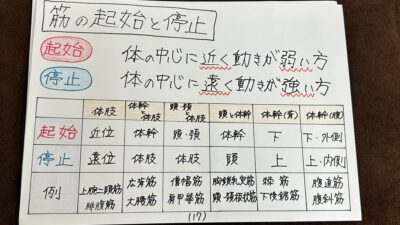 筋の起始と停止
起始 体の中心に近く動きが弱い方
停止 体の中心に遠く動きが強い方
体肢 体幹 体肢 頭・頸 体肢 頭と体幹 体幹(背) 体幹(腹)
起始 近位 体幹 頭・頸 体幹 下 下・外側
停止 遠位 体肢 体肢 頭 上 上・内側
例 上腕二頭筋 広背筋 僧帽筋 胸鎖乳突筋 棘筋 腹直筋
腓腹筋 大腰筋 肩甲挙筋 頭・頸板状筋 下後鋸筋 腹斜筋
(17)